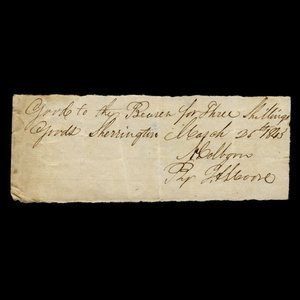 Good to the Bearer for Three Shillings
Goods Sherrington March 25th 1843
Per